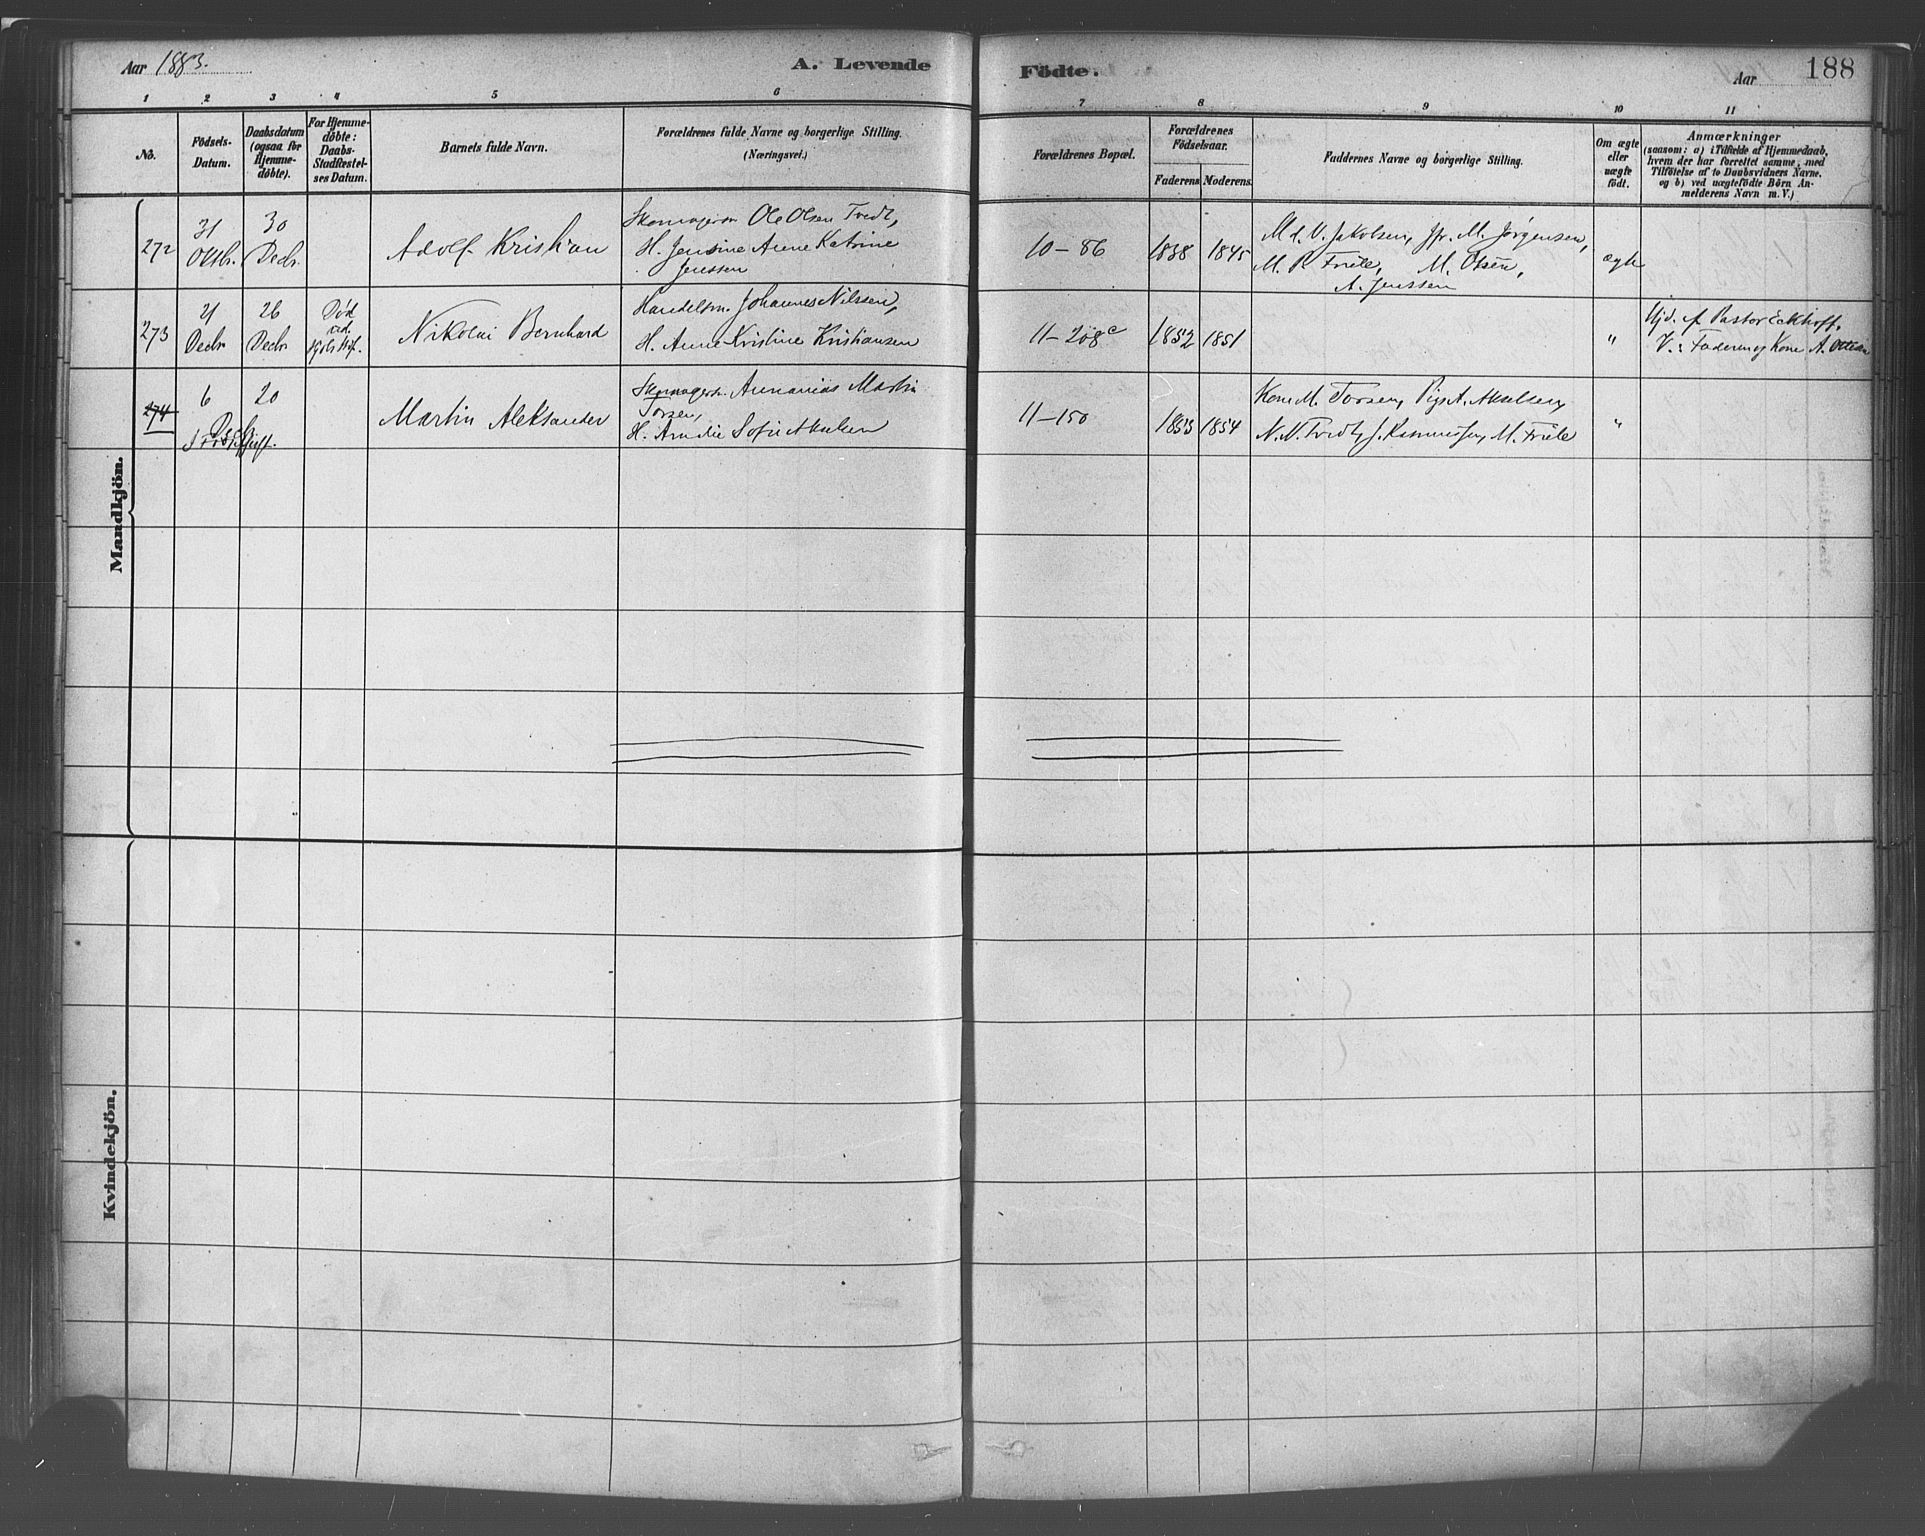 Aar 1883.
A. Levende Fødte.
Aar
188
1 2 3 4 5 6 7 8 9 10 11
No.
Fødsels-
Datum.
Daabsdatum
(ogsaa for
Hjemme-
døbte).
For Hjemme-
døbte:
Daabs-
Stadfæstel-
ses Datum.
Barnets fulde Navn.
Forældrenes fulde Navne og borgerlige Stilling.
(Næringsvei.)
Forældrenes Bopæl.
Forældrenes
Fødselsaar.
Faderens
Moderens.
Faddernes Navne og borgerlige Stilling.
Om ægte
eller
uægte
født.
Anmærkninger
(saasom: a) i Tilfælde af Hjemmedaab,
hvem der har forrettet samme, med
Tilføielse af to Daabsvidners Navne,
og b) ved uægtefødte Børn An-
melderens Navn m.V.)
Mandkjön.
272
31
Oktbr.
30
Decbr.
Adolf Kristian
Skomagersv. Ole Olsen Tvedt,
H. Jensine Anne Katrine
Jenssen
10-86
1838
1845
M d. V. Jakobsen, Jfr. M. Jørgensen,
M. R. Friele, M. Olsen,
A. Jenssen
ægte
273
21
Decbr
26
Decbr
Død
Nikolai Bernhard
Handelsm. Johannes Nilssen,
H. Anne Kristine Kristiansen
11-208c
1852
1851
"
Hjd. af Pastor Eckhoff.
V.: Faderen og Kone A.
274
6
20
Martin Aleksander
Ananias Martin
Torsen,
H. Sofie
11-150
1853
1854
Kone M. Torsen, Pige A.
N. N. Tvedt, J. Rasmussen, M. Friele
"
Kvindekjön.